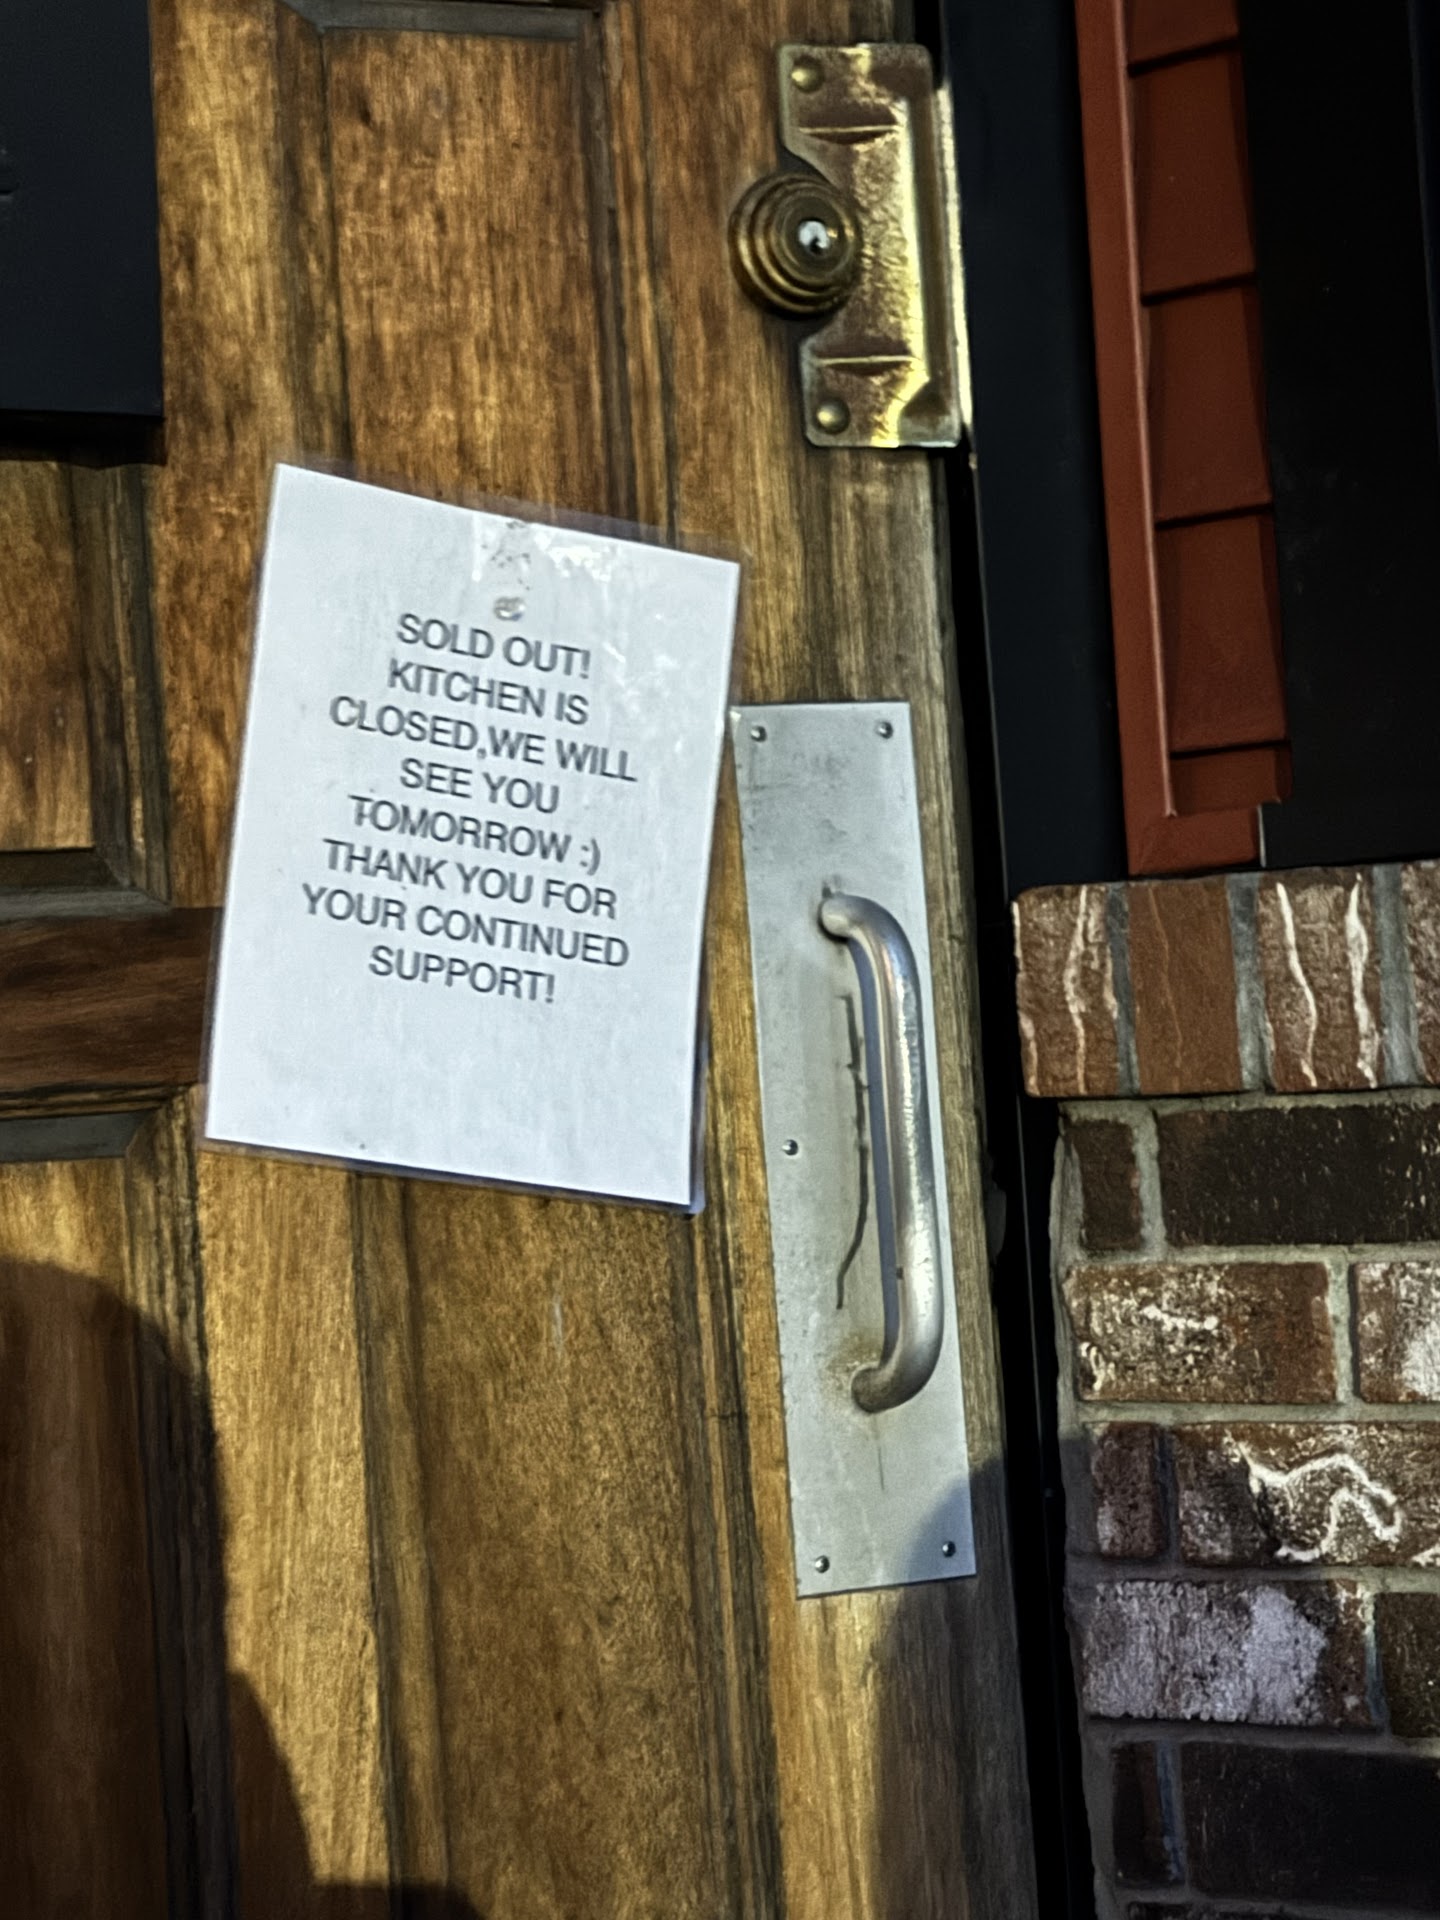 SOLD OUT!
KITCHEN IS
CLOSED,WE WILL
SEE YOU
TOMORROW :)
THANK YOU FOR
YOUR CONTINUED
SUPPORT!